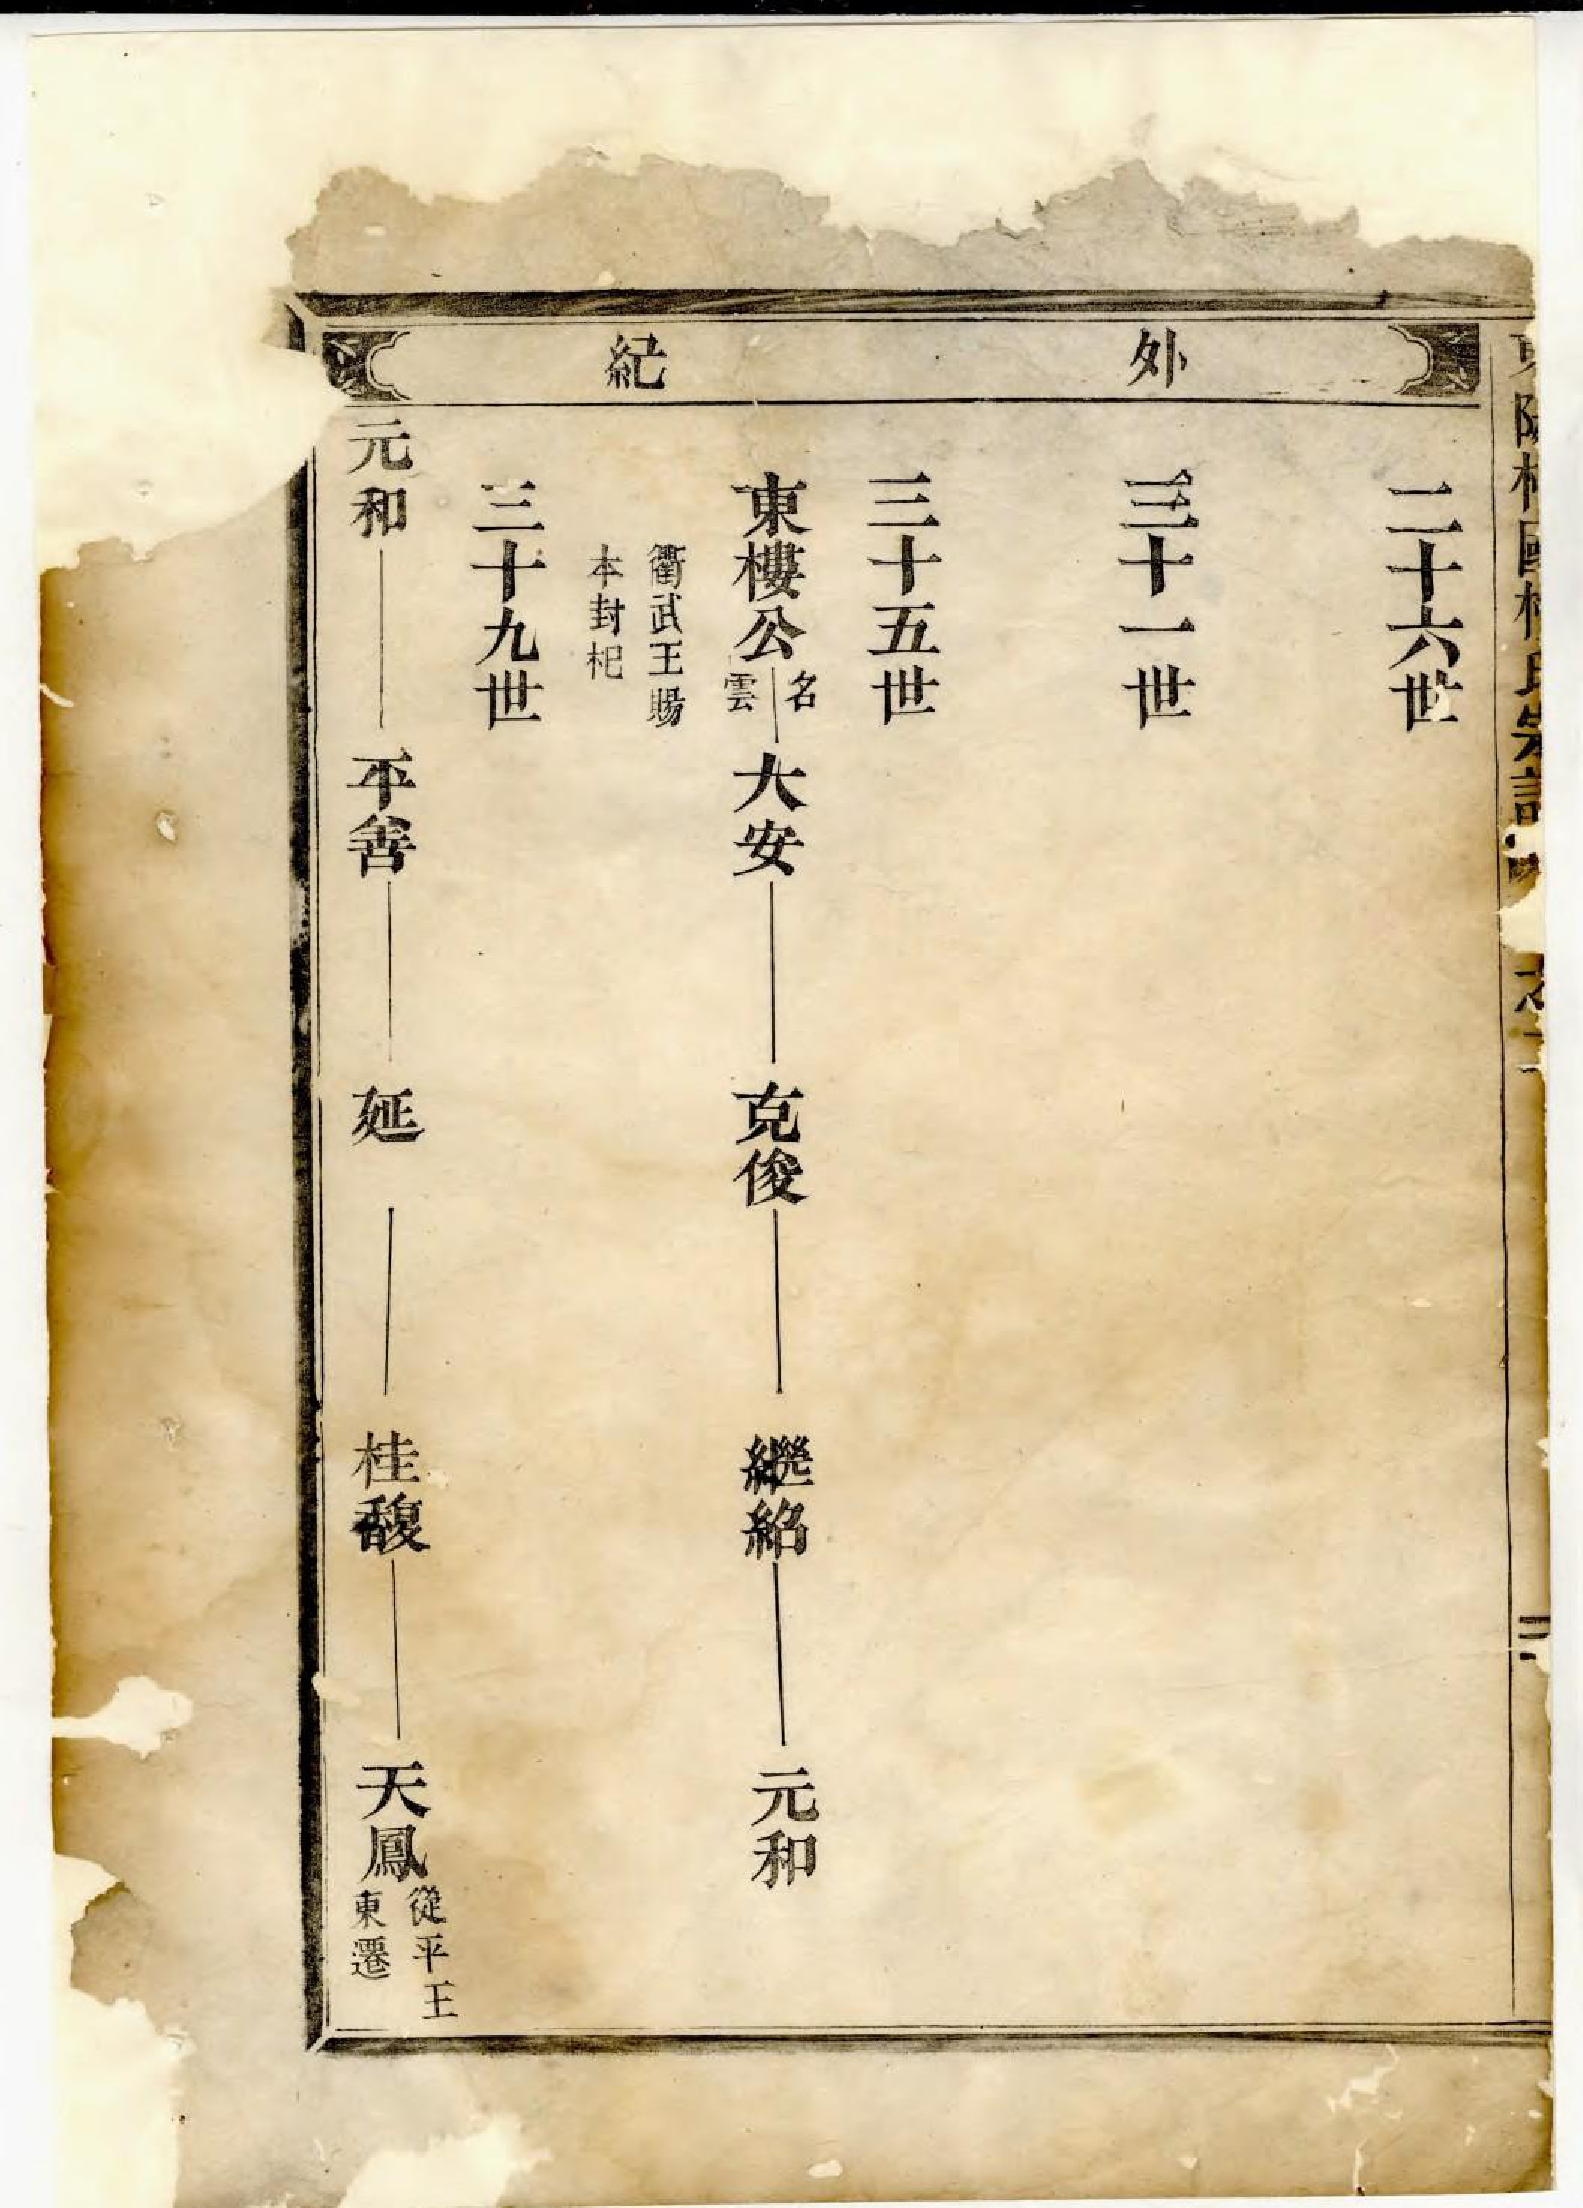 外紀
二十六世
三十一世
三十五世
東樓公 名雲 大安 克俊 繼紹 元和
衞武王賜
本封杞
三十九世
元和 平善 延 桂馥 天鳳 從平王東遷